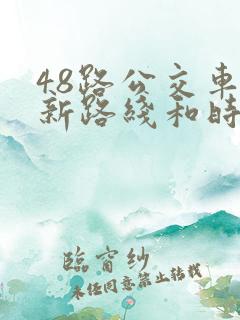 48路公交车
新路线和时
臨窗纱
未经同意禁止转载